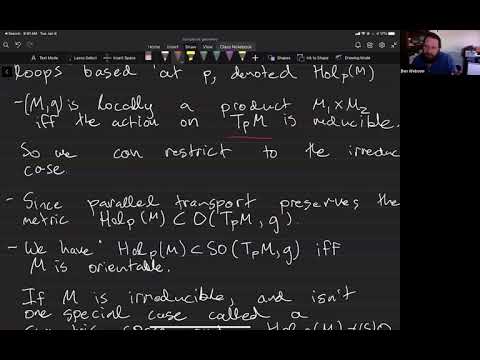 Search
9:41 AM Tue Jan 5
Symplectic geometry
Class Notebook
Text Mode
Lasso Select
Insert Space
Shapes
Ink to Shape
Ben Webster
loops based at p, denoted Holp(M)
-(M,g) is locally a product M1×M2
iff the action on TpM is reducible.
So we can restrict to the irreduc
case.
- Since parallel transport preserves the
metric Holp(M) ⊂ O(TpM, g).
- We have Holp(M) ⊂ SO(TpM, g) iff
M is orientable.
If M is irreducible, and isn't
one special case called a